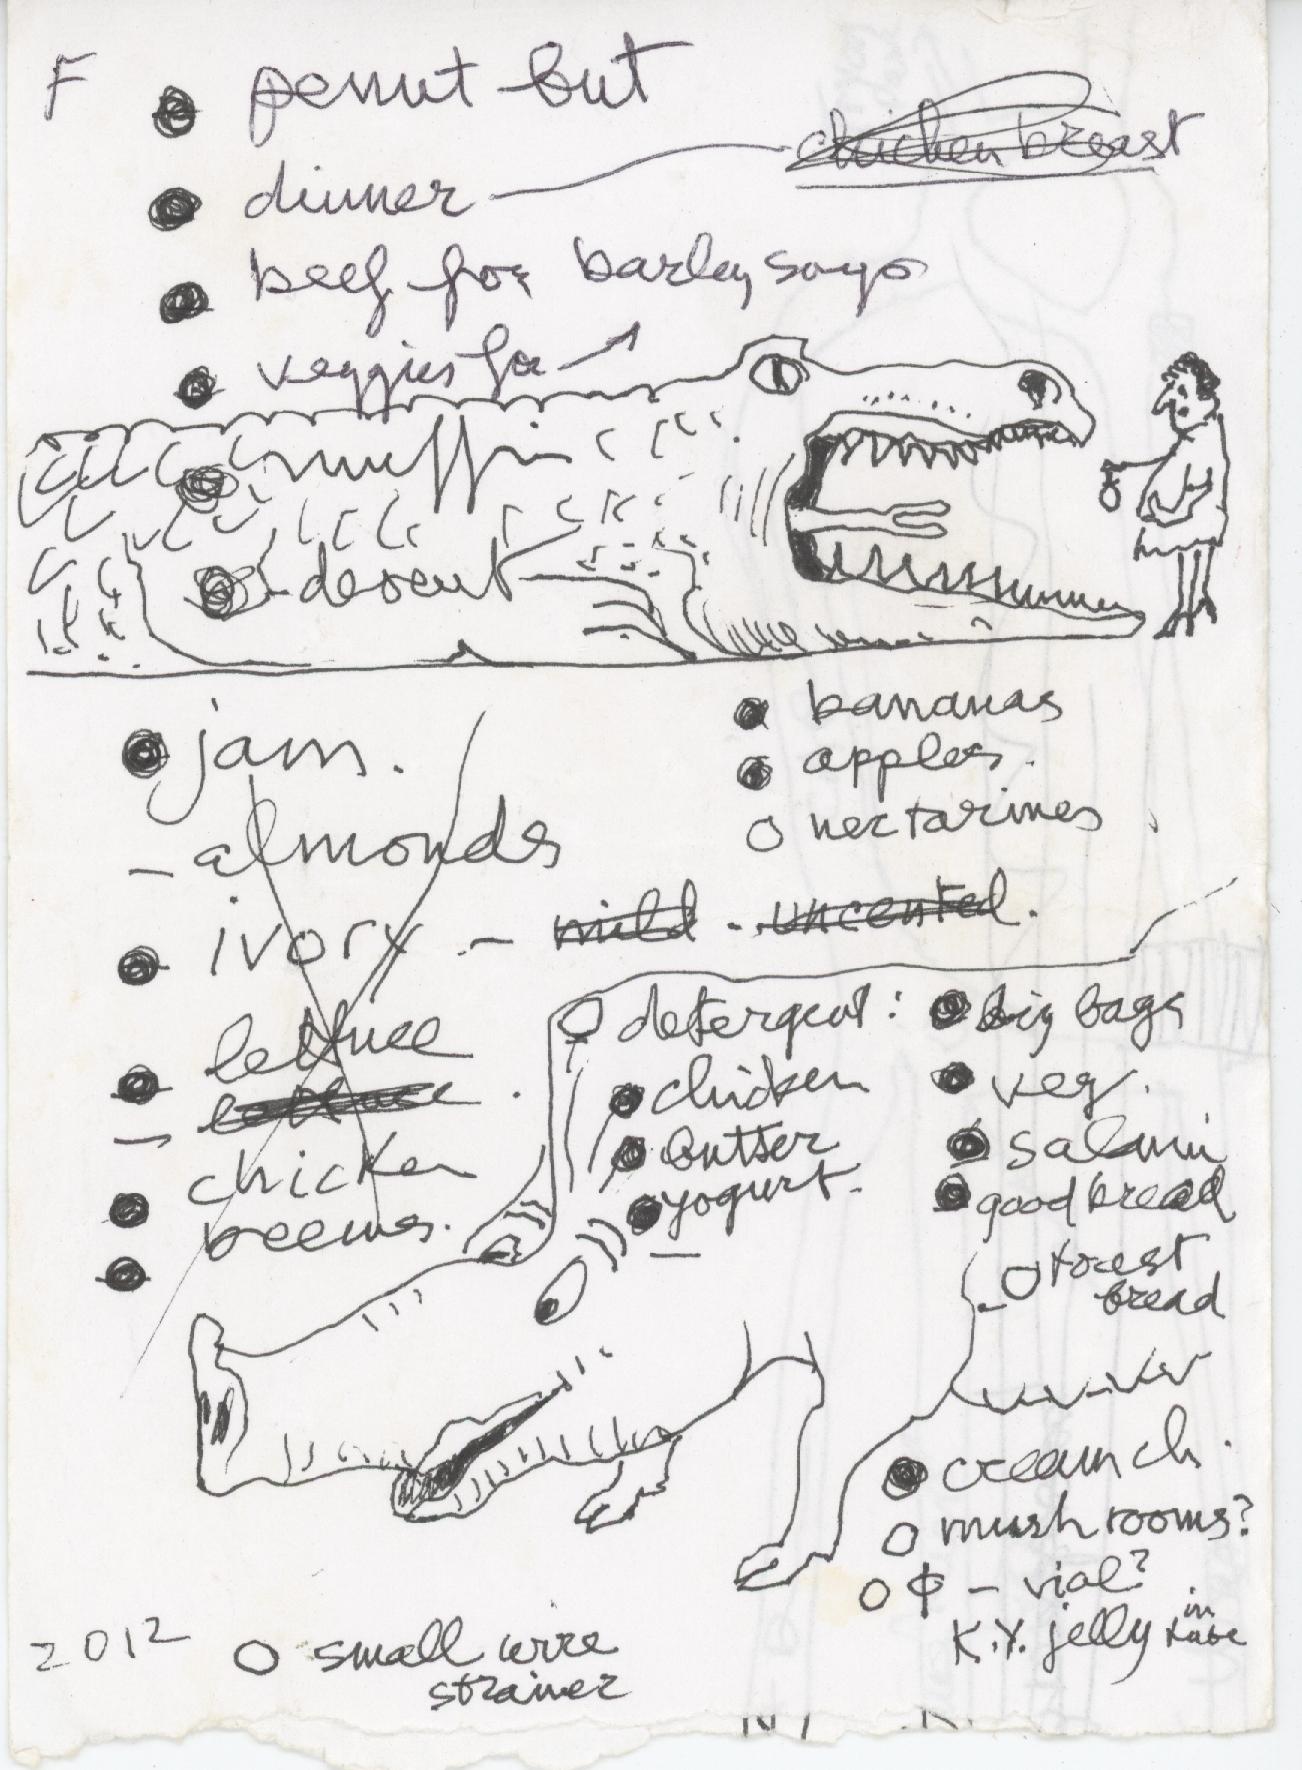 F
penut but
dinner — chicken breast
beef for barley soup
veggies for
muffin
jam.
almonds
ivory - mild - uncented.
lettuce
chicken
bananas
apples.
nectarines
detergent:
chicken
butter
yogurt.
big bags
veg.
salami
good bread
toast
bread
cream ch.
mushrooms?
ф - vial?
K.Y. jelly in tube
2012
small wire
strainer